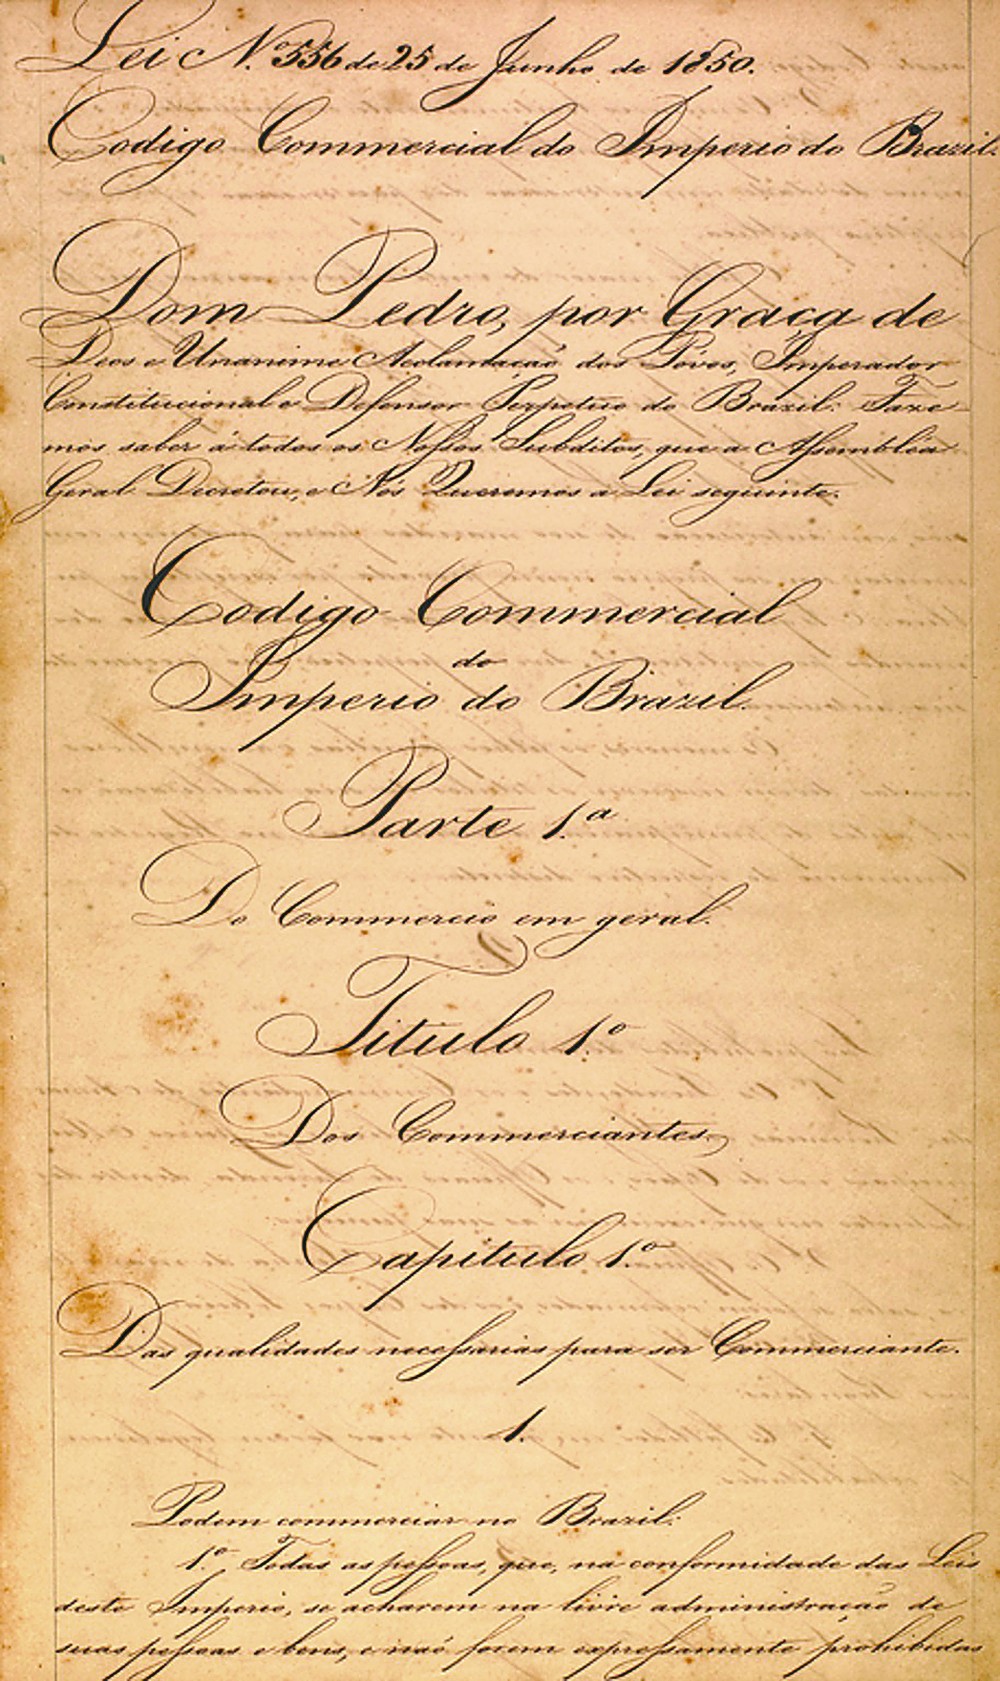 Lei N.º 556 de 25 de Junho de 1850.
Codigo Commercial do Imperio do Brazil.
Dom Pedro, por Graça de
Deos e Unanime Acclamação dos Póvos, Imperador
Constitucional e Defensor Perpetuo do Brazil: Faze
mos saber á todos os Nossos Subditos, que a Assembléa
Geral Decretou, e Nós Queremos a Lei seguinte.
Codigo Commercial
do
Imperio do Brazil.
Parte 1.ª
Do Commercio em geral.
Titulo 1.º
Dos Commerciantes
Capitulo 1.º
Das qualidades necessarias para ser Commerciante.
1.
Podem commerciar no Brazil:
1.º Todas as pessoas, que, na conformidade das Leis
deste Imperio, se acharem na livre administração de
suas pessoas e bens, e não forem expressamente prohibidas